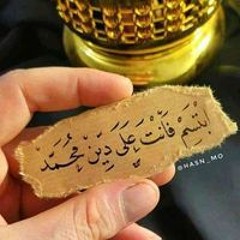 ابْتَسِمْ فَأنْتَ عَلَى دِيْنِ مُحَمَّدْ
@HASN_MO